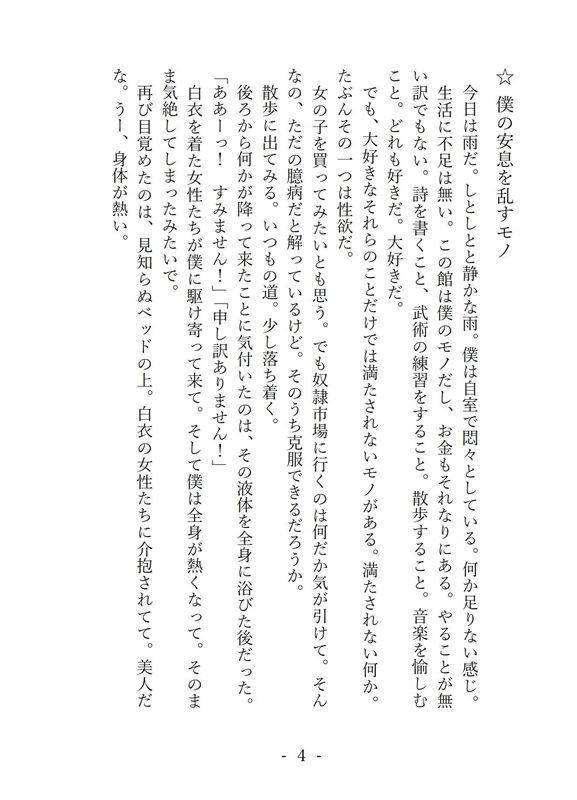 ☆ 僕の安息を乱すモノ
今日は雨だ。しとしとと静かな雨。僕は自室で悶々としている。何か足りない感じ。
生活に不足は無い。この館は僕のモノだし、お金もそれなりにある。やることが無
い訳でもない。詩を書くこと、武術の練習をすること。散歩すること。音楽を愉しむ
こと。どれも好きだ。大好きだ。
でも、大好きなそれらのことだけでは満たされないモノがある。満たされない何か。
たぶんその一つは性欲だ。
女の子を買ってみたいとも思う。でも奴隷市場に行くのは何だか気が引けて。そん
なの、ただの臆病だと解っているけど。そのうち克服できるだろうか。
散歩に出てみる。いつもの道。少し落ち着く。
後ろから何かが降って来たことに気付いたのは、その液体を全身に浴びた後だった。
「ああーっ！ すみません！」「申し訳ありません！」
白衣を着た女性たちが僕に駆け寄って来て。そして僕は全身が熱くなって。そのま
ま気絶してしまったみたいで。
再び目覚めたのは、見知らぬベッドの上。白衣の女性たちに介抱されてて。美人だ
な。うー、身体が熱い。
- 4 -